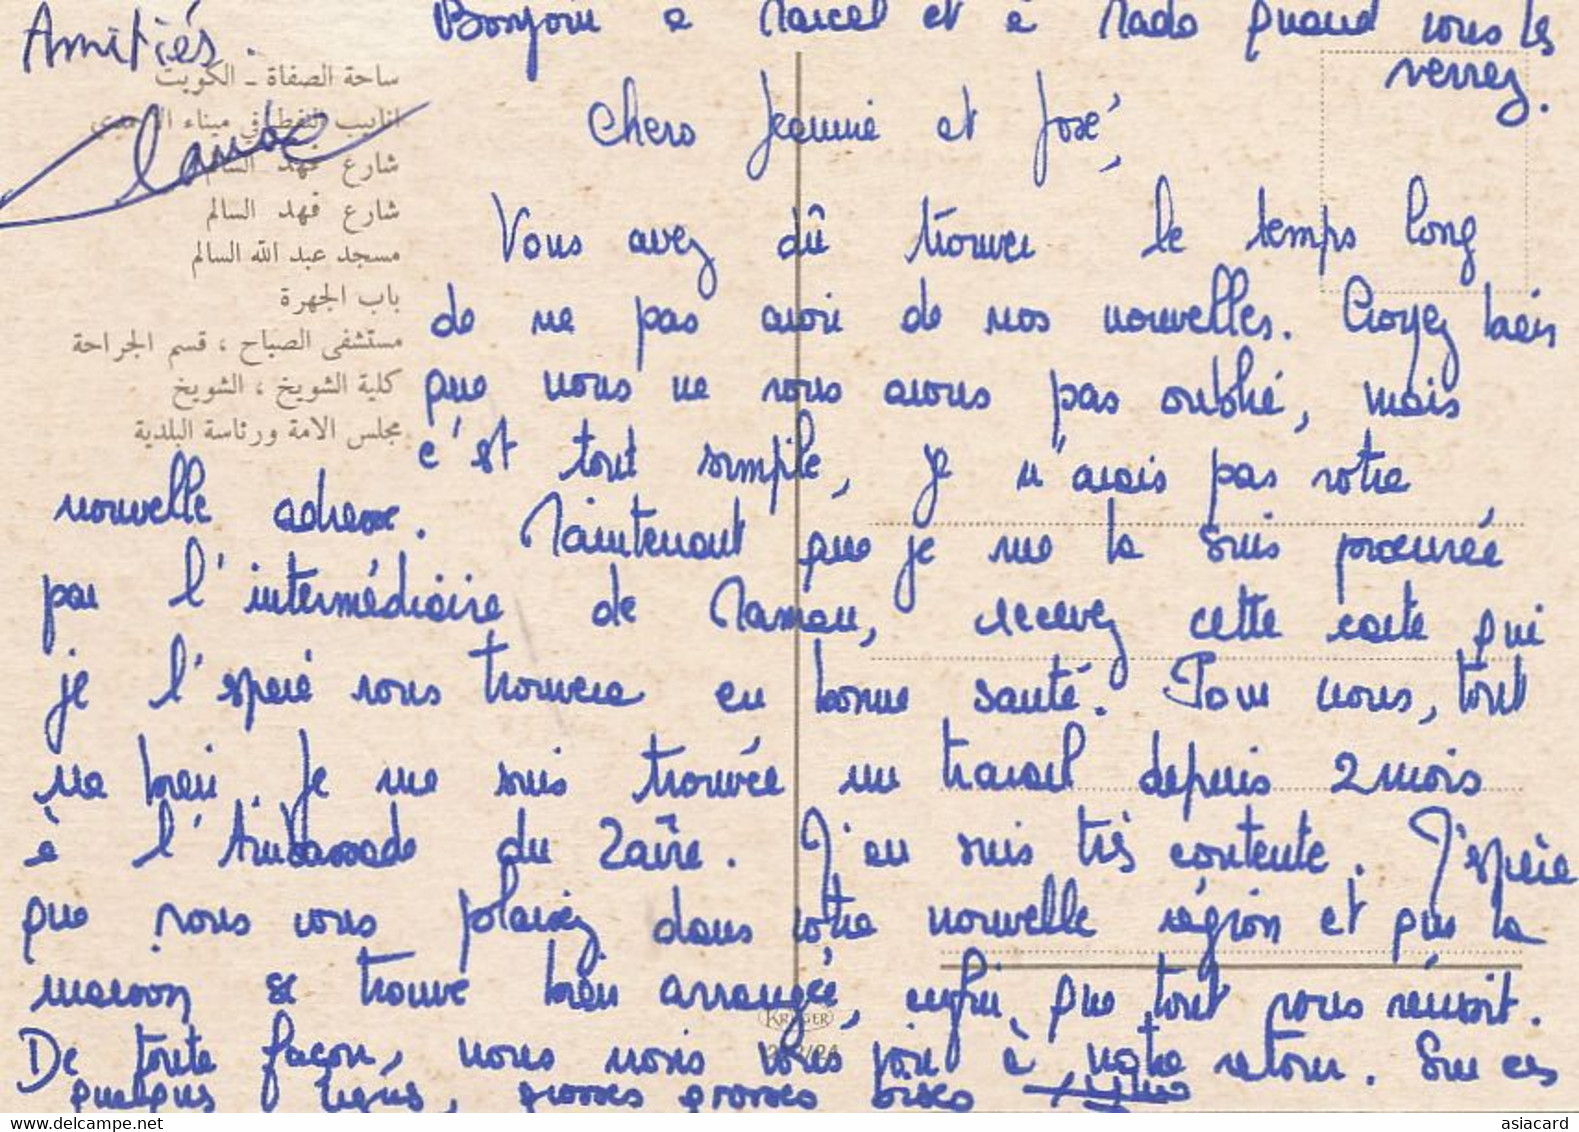 Bonjour à Marcel et à Mado quand vous les
verrez.
Amitiés.
ساحة الصفاة ـ الكويت
انابيب النفط في ميناء الاحمدي
شارع فهد السالم
شارع فهد السالم
مسجد عبد الله السالم
باب الجهرة
مستشفى الصباح ، قسم الجراحة
كلية الشويخ ، الشويخ
مجلس الامة ورئاسة البلدية
Chers Jeannie et José,
Vous avez dû trouver le temps long
de ne pas avoir de nos nouvelles. Croyez bien
que nous ne vous avons pas oublié, mais
c'est tout simple, je n'avais pas votre
nouvelle adresse. Maintenant que je me la suis procurée
par l'intermédiaire de Maman, recevez cette carte qui
je l'espère vous trouvera en bonne santé. Pour nous, tout
va bien. Je me suis trouvée un travail depuis 2 mois
à l'Ambassade du Zaïre. J'en suis très contente. J'espère
que vous vous plaisez dans votre nouvelle région et que la
maison se trouve bien arrangée, enfin, que tout vous réussit.
De toute façon, nous irons vous voir à notre retour. Sur ces
quelques lignes, grosses grosses bises
KRÜGER
asiacard